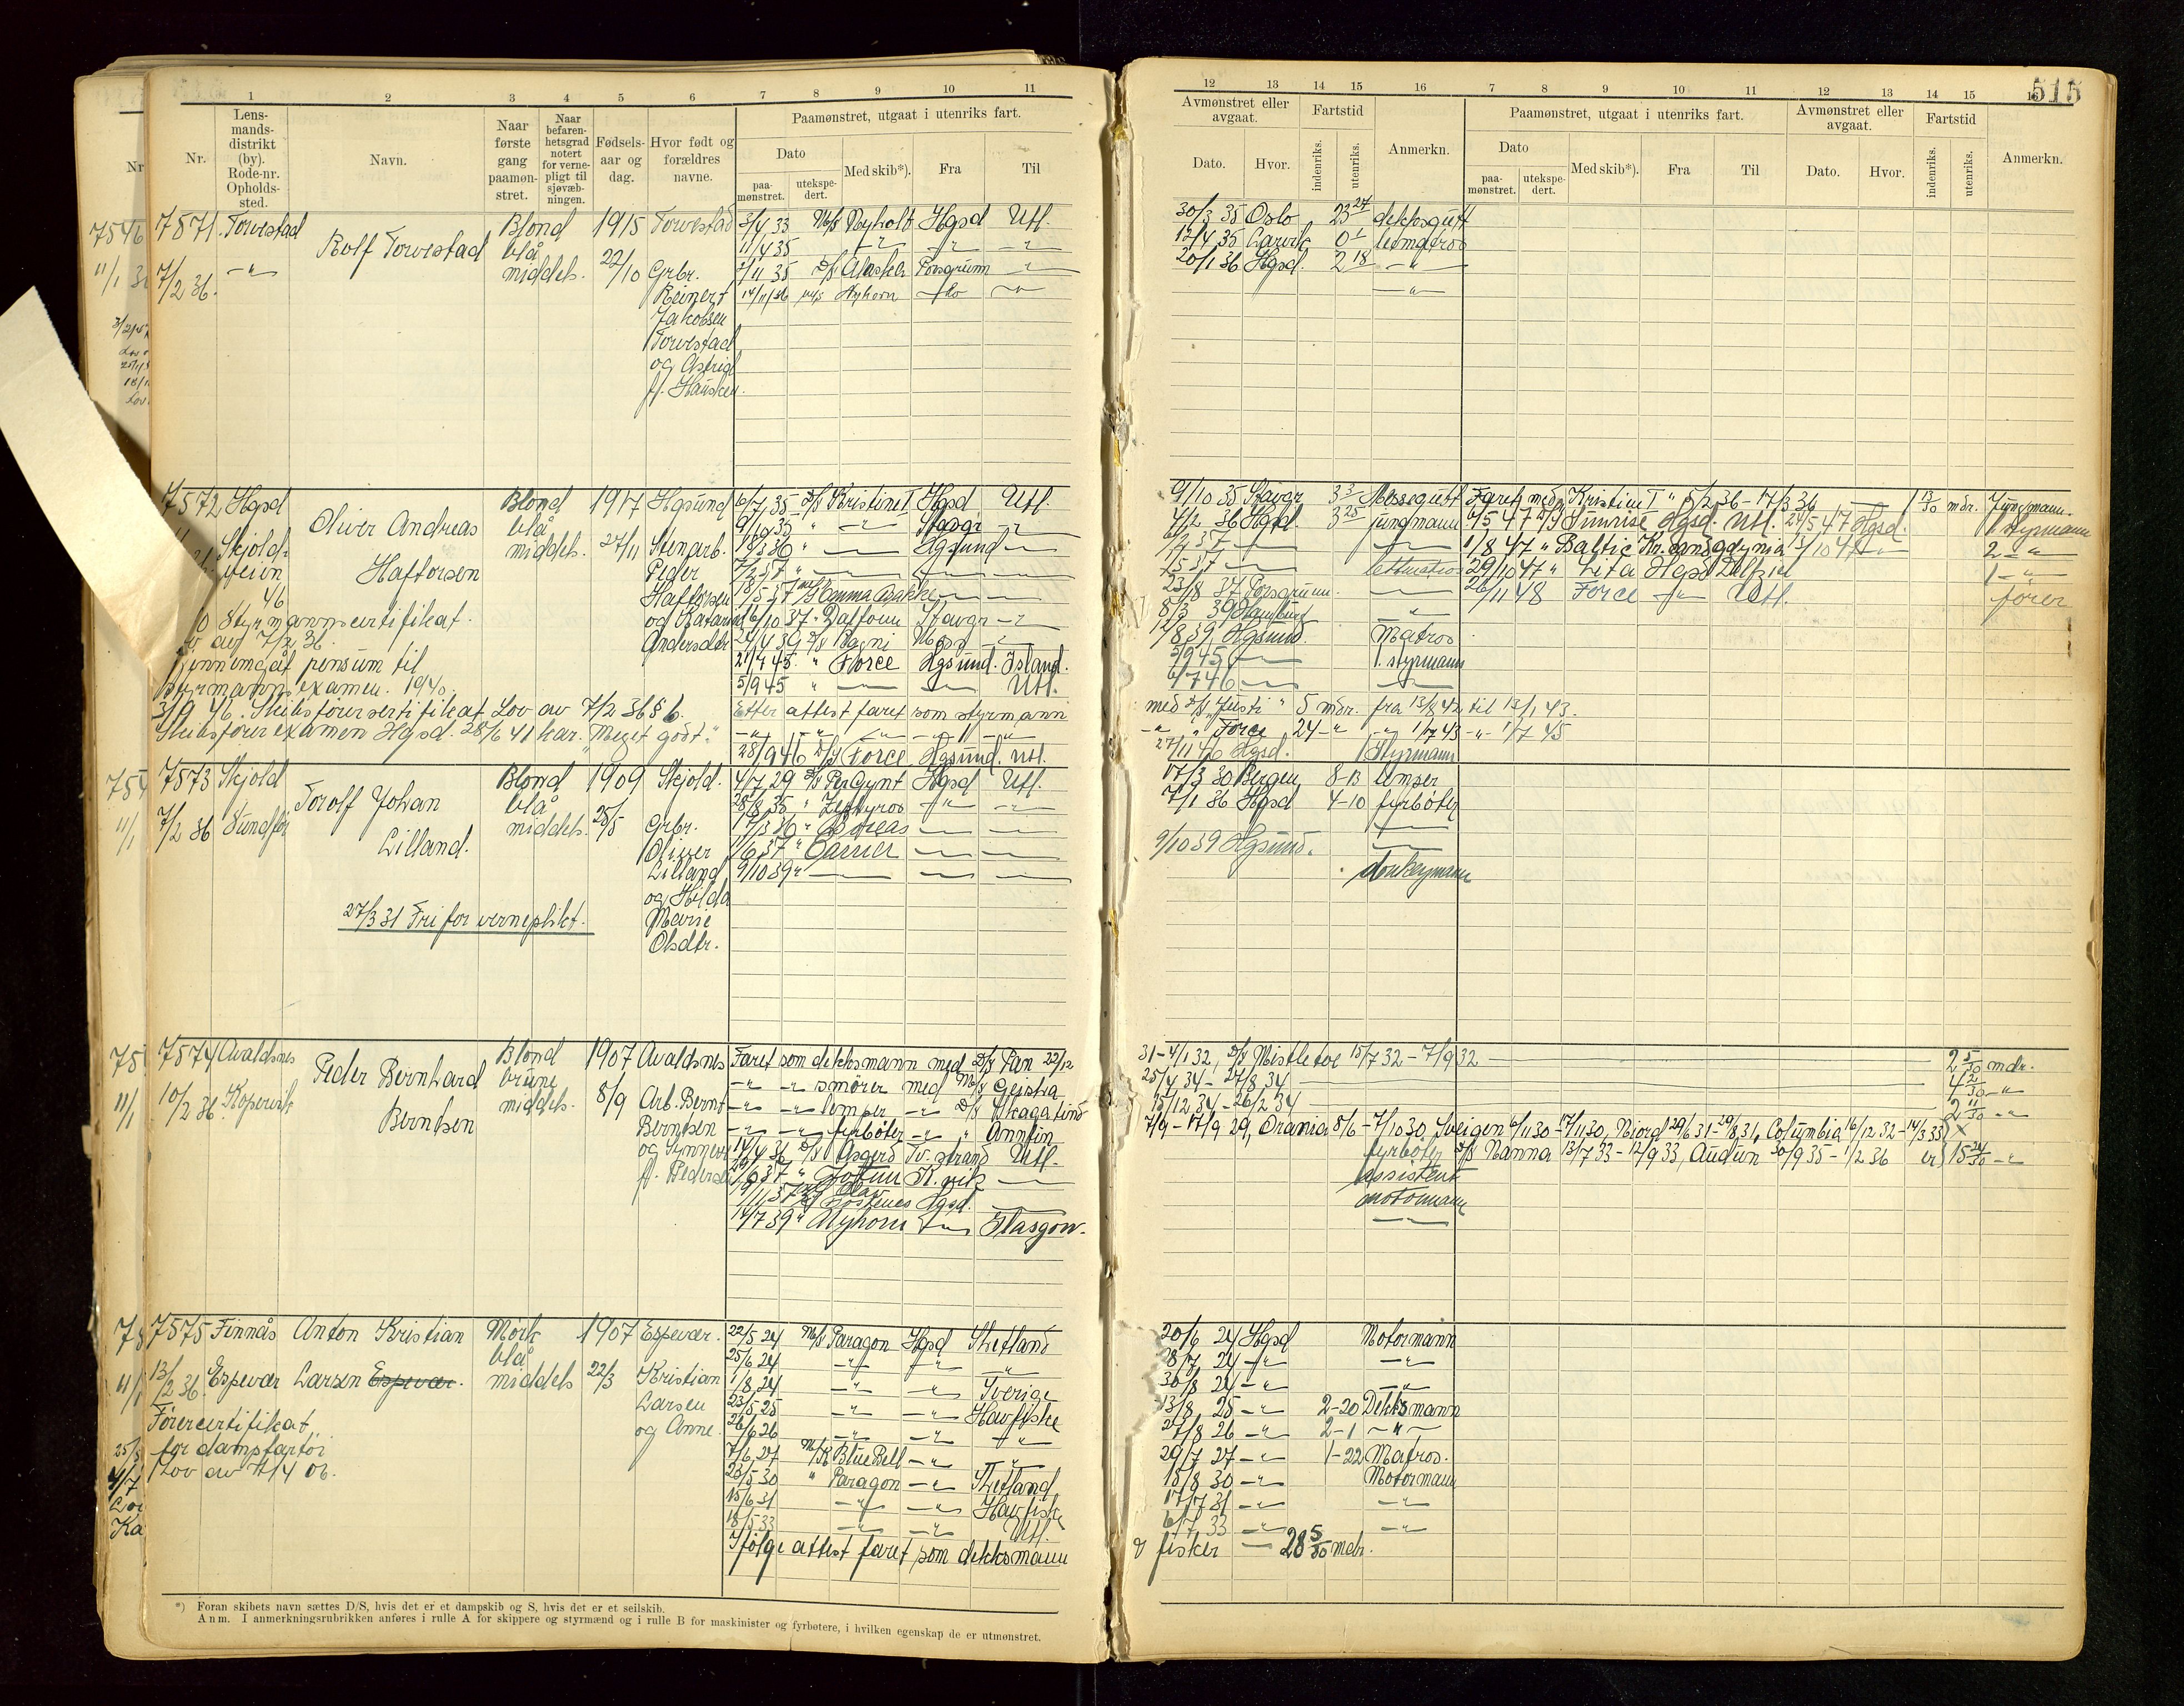 515
1 2 3 4 5 6 7 8 9 10 11
Nr.
Lens-
mands-
distrikt
(by).
Rode-nr.
Opholds-
sted.
Navn.
Naar
første
gang
paamøn-
stret.
Naar
befaren-
hetsgrad
notert
for verne-
pligt til
sjøvæb-
ningen.
Fødsels-
aar og
dag.
Hvor født og
forældres
navne.
Paamønstret, utgaat i utenriks fart.
Dato
paa-
mønstret.
utekspe-
dert.
Med skib*).
Fra
Til
12 13 14 15 16 7 8 9 10 11 12 13 14 15 16
Avmønstret eller
avgaat.
Dato. Hvor.
Fartstid
indenriks. utenriks.
Anmerkn.
Paamønstret, utgaat i utenriks fart.
Dato
paa-
mønstret.
utekspe-
dert.
Med skib*). Fra Til
Avmønstret eller
avgaat.
Dato. Hvor.
Fartstid
indenriks. utenriks.
Anmerkn.
7571. Torvestad
7/2 36. -"-
Rolf Torvestad
Blond
blå
middels.
1915
22/10
Torvestad
Grbr.
Reinert
Jakobsen
Torvestad
og Astrid
f. Hausken.
3/4 33 M/S Nyholt Hgsd Utl.
11/4 35 -"- -"- -"-
7/11 35 D/S Alaska Porsgrunn -"-
14/11/36 M/S Nyhorn
30/3 35 Oslo 23 27 dekksgutt
12/4 35 Larvik lettmatros
20/1 36 Hgsd. 2 18 -"-
-"-
7572 Hgsd
Skjold-
veien
46
Oliver Andreas
Haftorsen
Blond
blå
middels.
1917
27/11
Hgsund
Stenarb.
Peder
Haftorsen
og Katarina
Andersdtr
Styrmannscertifikat.
av 7/2 36.
Gjennemgåt pensum til
styrmannsexamen. 1940.
3/9 46. Skibsførersertifikat Lov av 7/2 36 § 6.
Skibsførerexamen Hgsd. 28/6 41 kar. "Meget godt."
6/7 35 D/S Kristine I Hgsd Utl.
9/10 35 " -"- Stavgr -"-
19/3 36 " Hgsund
7/2 37 "
18/5 37 M/S Hemma Bakke
16/10 37 " Dalfonn Stavgr -"-
24/4 39 D/S Ragni
21/7 45. " Force Hgsund. Island.
5/9 45 " Utl.
Etter attest faret som styrmann
28/9 46 D/S Force Hgsund. Utl.
9/10 35 Stavgr 3 3 Messegutt
4/2 36 Hgsd 3 25 jungmann
lettmatros
23/8 37 Porsgrunn.
8/3 39 Hamburg -"-
17/8 39 Hgsund. Matros
5/9 45 1. styrmann
6/7 46
med D/S "Justi" 5 mdr. fra 13/8 42 til 13/1 43.
-"- " Force 24 -"- -"- 1/7 43 -"- 1/7 45
27/11 46 Hgsd. 1 Styrmann
Faret med "Kristine I" 5/2 36 - 17/3 36 1 13/30 mdr. Jungmann.
4/5 47 D/S Sunrise Hgsd. Utl. 24/5 47 Hgsd. 1 styrmann
1/8 47 " Baltic Kr.sand Gdynia 2 -"-
29/10 47 " Lita Hgsd Dalziel 1 -"-
26/11 48 Force -"- Utl. fører
7573 Skjold
7/2 36 Sundfør
Torolf Johan
Lilland.
27/3 31 Fri for verneplikt.
Blond
blå
middels.
1909
28/5
Skjold.
Grbr.
Oliver
Lilland
og Hilda
Marie
Olsdtr.
4/7 29 D/S Per Gynt Hgsd Utl.
28/8 35 " Zephyros -"- -"-
17/3 36 " Boreas
1/6 37 " Carrier
9/10 39 "
17/3 30 Bergen 8-13 lemper
7/1 36 Hgsd 4-10 fyrbøter
9/10 39 Hgsund.
donkeymann
7574 Avaldsnes
10/2 36. Kopervik
Peder Bernhard
Berntsen
Blond
brune
middels.
1907
8/9
Avaldsnes
Arb. Bernt
Berntsen
f. Pedersen
Faret som dekksmann med D/S Pan 22/12
-"- -"- smører med M/S Geisha
-"- -"- lemper -"- D/S Skagatind
-"- -"- fyrbøter -"- " Annfin
14/4 36 D/S Asgerd Tv.strand Utl.
29/6 37 " Jottun K.vik
Røstenes Hgsd.
14/7 39 " Nyhorn -"- Glasgow.
31-4/1 32, D/S Mistletoe 15/7 32 - 7/9 32 2 5/30 mdr.
25/4 34 - 27/8 34 4 2/30 -"-
15/12 34 - 26/2 34 2 11/30 -"-
7/9 - 17/9 29, Orania 8/6 - 7/10 30, Sveigen 6/11 30 - 17/11 30, Njord 29/6 31 - 29/8 31, Columbia 16/12 32 - 14/3 33
fyrbøter D/S Nanna 13/7 33 - 12/9 33, Audun 30/9 35 - 1/2 36 er 15 24/30 -"-
assistent
motormann
7575 Finnås
13/2 36. Espevær
Anton Kristian
Larsen Espevær.
Førercertifikat
for dampfartøi
Lov av 7/4 06.
Mørk
blå
middels
1907
22/3
Espevær.
Kristian
Larsen
og Anne.
22/5 24 M/S Paragon Hgsd Shetland
25/6 24 -"- -"- -"-
1/8 24 -"- -"- Sverige
23/5 25 -"- -"- Havfiske
26/6 26 -"- -"- -"-
7/6 27 M/K Blue Bell -"- -"-
23/5 30 " Paragon -"- Shetland
15/6 31 -"- -"- Havfiske
18/5 33 -"- -"- Utl.
Ifølge attest faret som dekksmann
20/6 24 Hgsd Motormann
28/7 24 -"- -"-
30/8 24 -"- -"-
13/8 25 -"- 2-20 Dekksmann
27/8 26 -"- 2-1 -"-
29/7 27 -"- 1-22 Matros.
18/8 30 -"- Motormann
17/7 31 -"- -"-
6/7 33 -"- -"-
fisker 28 5/30 mdr.
*) Foran skibets navn sættes D/S, hvis det er et dampskib og S, hvis det er et seilskib.
Anm. I anmerkningsrubrikken anføres i rulle A for skippere og styrmænd og i rulle B for maskinister og fyrbøtere, i hvilken egenskap de er utmønstret.